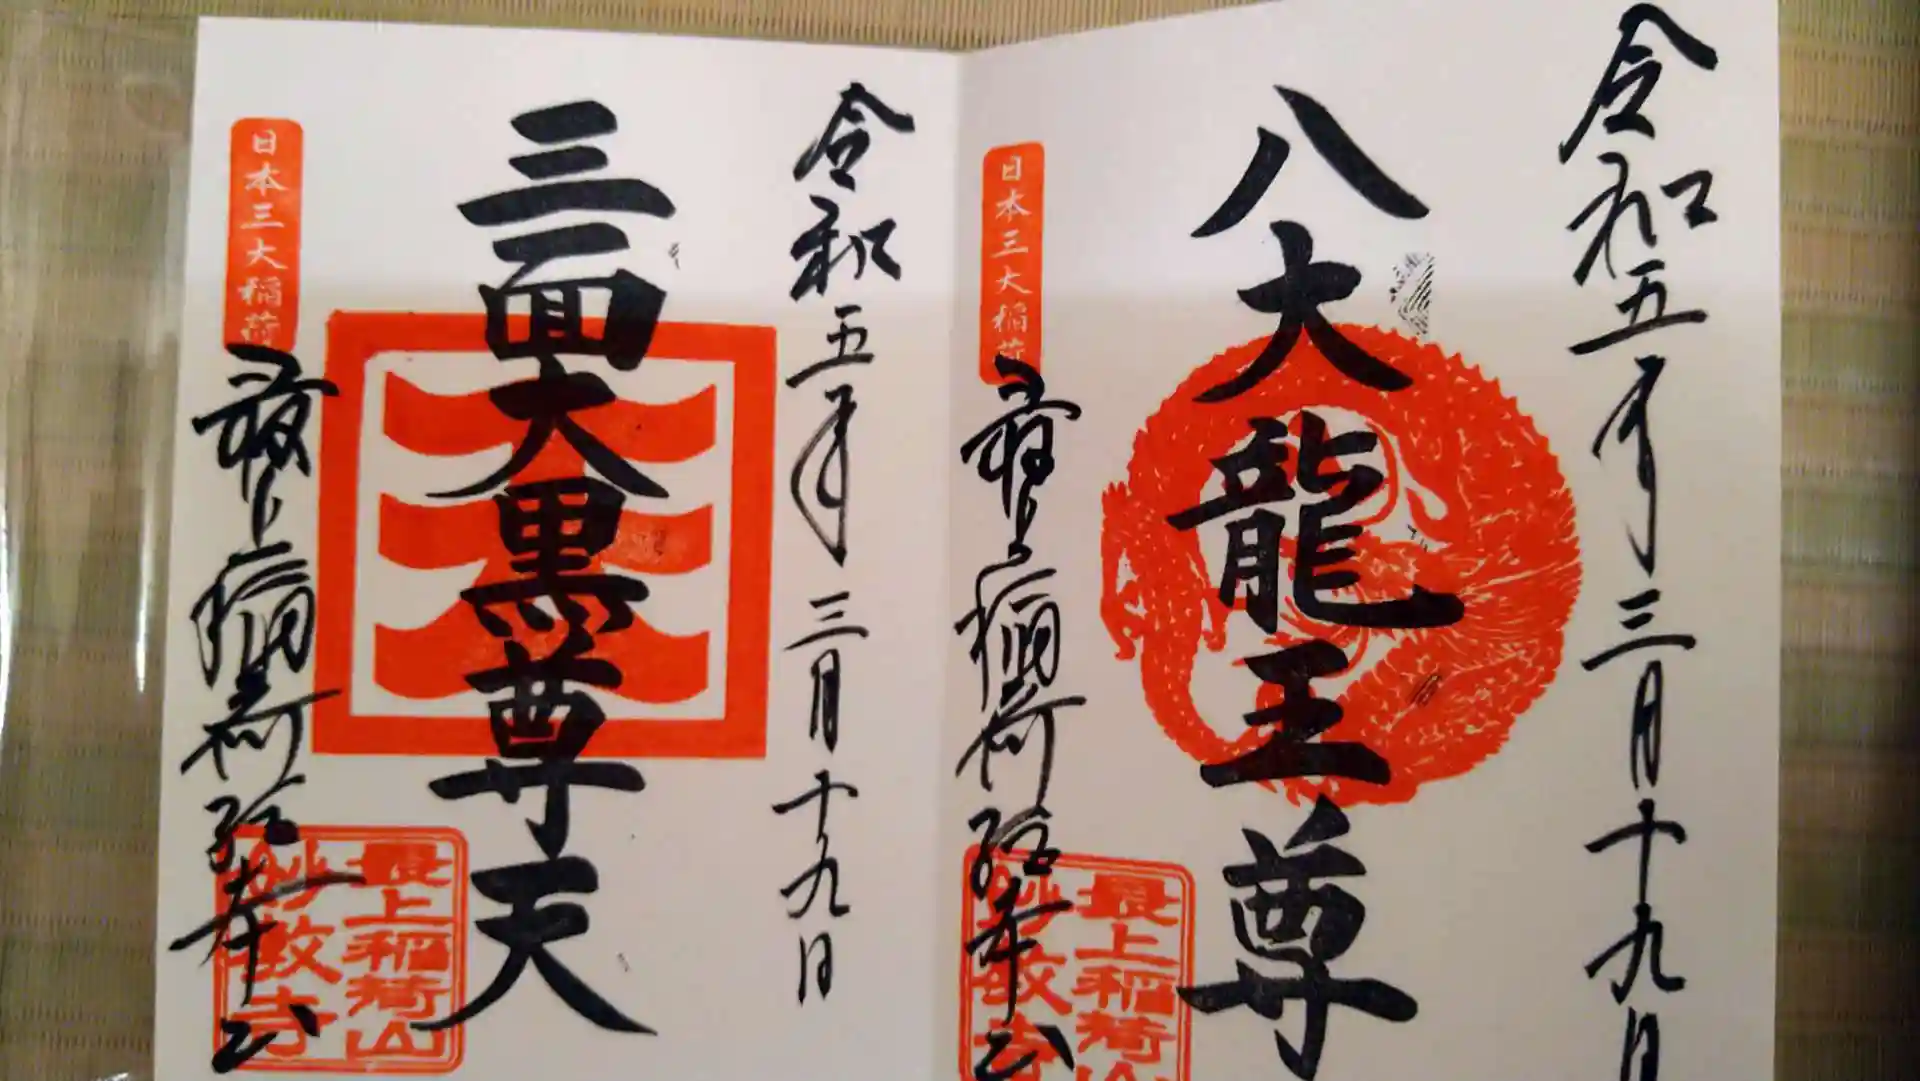 令和五年三月十九日
八大龍王尊
日本三大稲荷
最上稲荷総本山
最上稲荷山
妙教寺
令和五年三月十九日
三面大黒尊天
日本三大稲荷
最上稲荷総本山
最上稲荷山
妙教寺